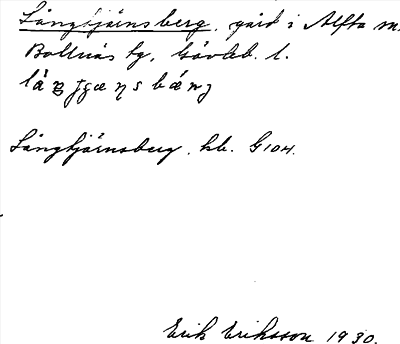 Långtjärnsberg, gård i Alfta sn.
Bollnäs tg, Gävleb. l.
Långtjärnsberg. kb. G104.
Erik Eriksson 1930.